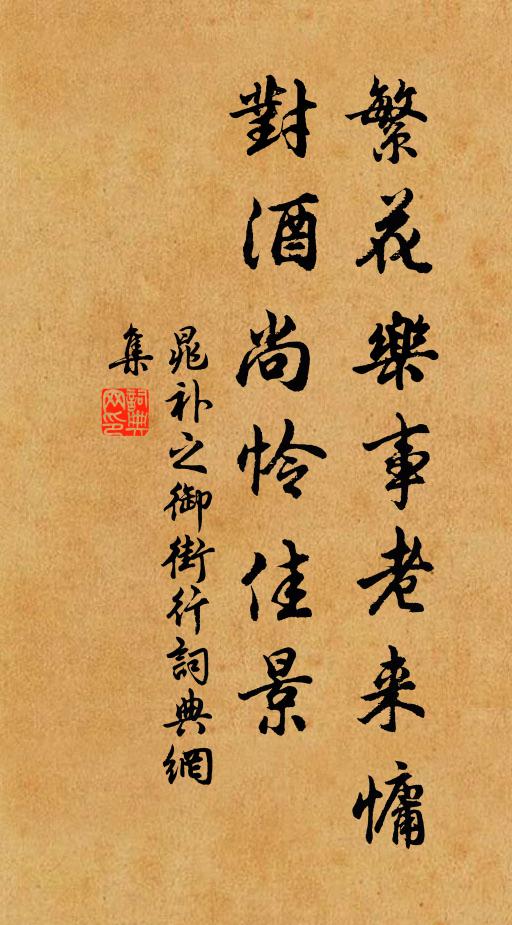 繁花樂事老来慵
對酒尚怜佳景
晁补之御街行詞典網
集
詞典網印